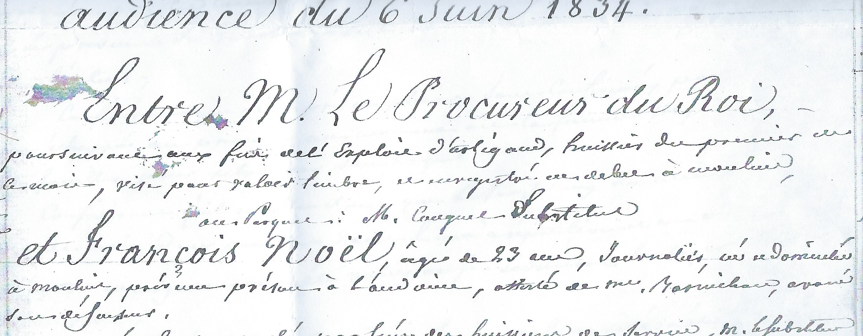 audience du 6 Juin 1834.
Entre M. Le Procureur du Roi,
poursuivant aux fins de l'Exploit d'artigaud, huissier du premier de
ce mois, visé pour valoir timbre, et enregistré en debet à moulins,
au Parquet : M. Substitut
et François Noël, âgé de 23 ans, Journalier, né et domicilié
à moulins, prévenu présent à l'audience, assisté de me. avoué
son défenseur.
huissiers de service, M. le Substitut